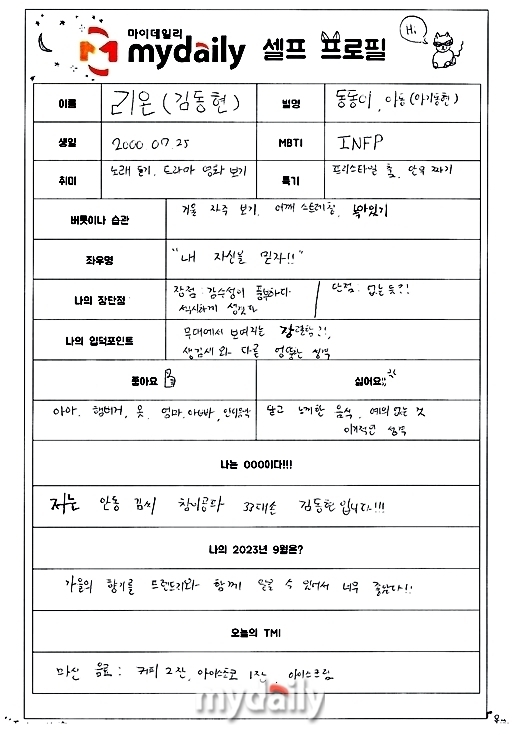 마이데일리
mydaily 셀프 프로필
Hi
이름 리온 (김동현) 별명 동동이, 아동 (아기동현)
생일 2000 07.25 MBTI INFP
취미 노래 듣기, 드라마 영화 보기 특기 프리스타일 춤, 안무 짜기
버릇이나 습관 거울 자주 보기, 어깨 스트레칭,
좌우명 "내 자신을 믿자!!"
나의 장단점 장점: 감수성이 풍부하다. / 단점: 없는 듯?!
섹시하게 생겼다
나의 입덕포인트 무대에서 보여지는 강렬함?!,
생김새와 다른 엉뚱한 성격
좋아요 싫어요;;
아아, 햄버거, 옷, 엄마, 아빠, 달고 느끼한 음식, 예의 없는 것
이기적인 성격
나는 OOO이다!!!
저는 안동 김씨 33대손 김동현입니다!!!
나의 2023년 9월은?
가을의 향기를 드렌드리와 함께 맡을 수 있어서 너무 좋답니다!!
오늘의 TMI
마신 음료: 커피 2잔, 아이스초코 1잔, 아이스크림
mydaily